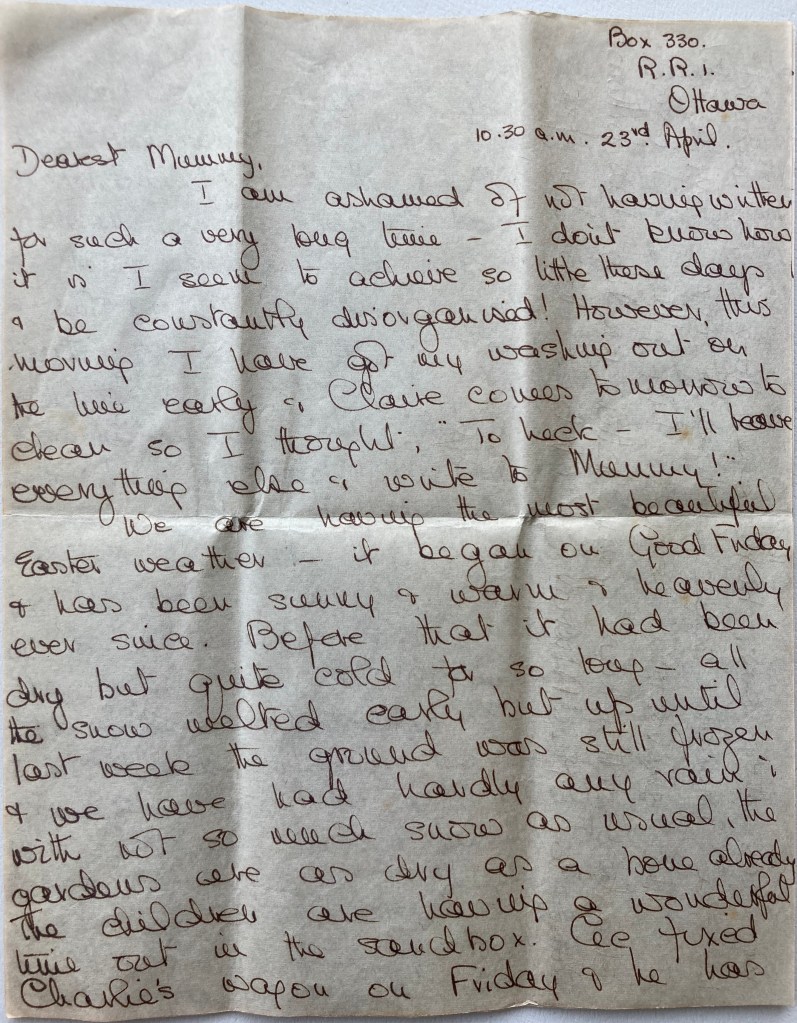 Box 330.
R.R.1.
Ottawa
10.30 a.m. 23rd April.
Dearest Mummy,
I am ashamed of not having written
for such a very long time - I don't know how
it is I seem to achieve so little these days
& be constantly disorganised! However, this
morning I have got my washing out on
the line early & Claire comes tomorrow to
clean so I thought, "To heck - I'll leave
everything else & write to Mummy!"
We are having the most beautiful
Easter weather - it began on Good Friday
& has been sunny & warm & heavenly
ever since. Before that it had been
dry but quite cold for so long - all
the snow melted early but up until
last week the ground was still frozen
& we have had hardly any rain;
with not so much snow as usual, the
gardens are as dry as a bone already
The children are having a wonderful
time out in the sandbox. fixed
Charlie's wagon on Friday & he has